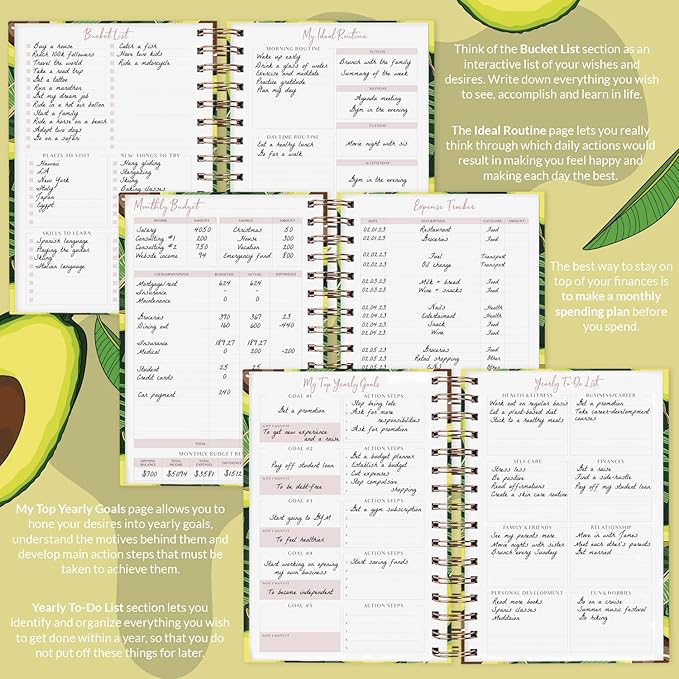 Bucket List
Buy a house
Reach 100k followers
Travel the world
Take a road trip
Get a tattoo
Run a marathon
Get my dream job
Ride in a hot air ballon
Start a family
Ride a horse on a beach
Adopt two dogs
Go on a safari
Catch a fish
Have two kids
Ride a motorcycle
PLACES TO VISIT
Hawaii
LA
New York
Italy
Japan
Egypt
NEW THINGS TO TRY
Hang gliding
Stargazing
Skiing
Baking classes
SKILLS TO LEARN
Spanish language
Playing the guitar
Skiing
Italian language
My Ideal Routine
MORNING ROUTINE
Wake up early
Drink a glass of water
Exercise and meditate
Practice gratitude
Plan my day
DAYTIME ROUTINE
Eat a healthy lunch
Go for a walk
SUNDAY
Brunch with the family
Summary of the week
MONDAY
Agenda meeting
Gym in the evening
TUESDAY
Movie night with sis
WEDNESDAY
Gym in the evening
Think of the Bucket List section as an
interactive list of your wishes and
desires. Write down everything you wish
to see, accomplish and learn in life.
The Ideal Routine page lets you really
think through which daily actions would
result in making you feel happy and
making each day the best.
Monthly Budget
INCOME AMOUNT SAVINGS AMOUNT
Salary 4050 Christmas 50
Consulting #1 200 House 300
Consulting #2 750 Vacation 200
Website income 94 Emergency fund 800
CATEGORY/EXPENSE BUDGETED ACTUAL DIFFERENCE
Mortgage/rent 624 624 -
Insurance - - -
Maintenance - 0 0
Groceries 390 367 23
Dining out 160 600 -440
Insurance 189.27 189.27
Medical 0 200 -200
Student 25 25
Credit cards 0 0
Car payment 240
TOTAL
MONTHLY BUDGET RE
OPENING BALANCE TOTAL INCOME TOTAL EXPENSES DIFFERENCE
$700 $5094 $3581 $1512
Expense Tracker
DATE DESCRIPTION CATEGORY AMOUNT
02.01.23 Restaurant Food
02.01.23 Groceries Food
02.02.23 Fuel Transport
02.02.23 Oil change Transport
02.03.23 Milk + bread Food
02.03.23 Wine + snacks Food
02.04.23 Nails Health
02.04.23 Entertainment Health
02.04.23 Snack Food
02.04.23 Wine Food
02.05.23 Groceries Food
02.05.23 Retail shopping Other
The best way to stay on
top of your finances is
to make a monthly
spending plan before
you spend.
My Top Yearly Goals
GOAL #1
Get a promotion
WHY I WANT IT
To get new experience
and a raise
ACTION STEPS
Stop being late
Ask for more
responsibilities
Ask for promotion
GOAL #2
Pay off student loan
WHY I WANT IT
To be debt-free
ACTION STEPS
Get a budget planner
Establish a budget
Cut expenses
Stop compulsive
shopping
GOAL #3
Start going to GYM
WHY I WANT IT
To feel healthier
ACTION STEPS
Get a gym subscription
GOAL #4
Start working on opening
my own business
WHY I WANT IT
To become independent
ACTION STEPS
Start saving funds
GOAL #5
WHY I WANT IT
ACTION STEPS
Yearly To-Do List
HEALTH & FITNESS
Work out on regular basis
Eat a plant-based diet
Stick to a healthy meals
BUSINESS/CAREER
Get a promotion
Take career-development
courses
SELF-CARE
Stress less
Be positive
Read affirmations
Create a skin care routine
FINANCES
Get a raise
Find a side-hustle
Pay off my student loan
FAMILY & FRIENDS
See my parents more
Movie nights with sister
Brunch every Sunday
RELATIONSHIP
Move in with James
Meet each other's parents
Get married
PERSONAL DEVELOPMENT
Read more books
Spanis classes
Meditaion
FUN & HOBBIES
Go on a cruise
Summer music festival
Go hiking
My Top Yearly Goals page allows you to
hone your desires into yearly goals,
understand the motives behind them and
develop main action steps that must be
taken to achieve them.
Yearly To-Do List section lets you
identify and organize everything you wish
to get done within a year, so that you do
not put off these things for later.